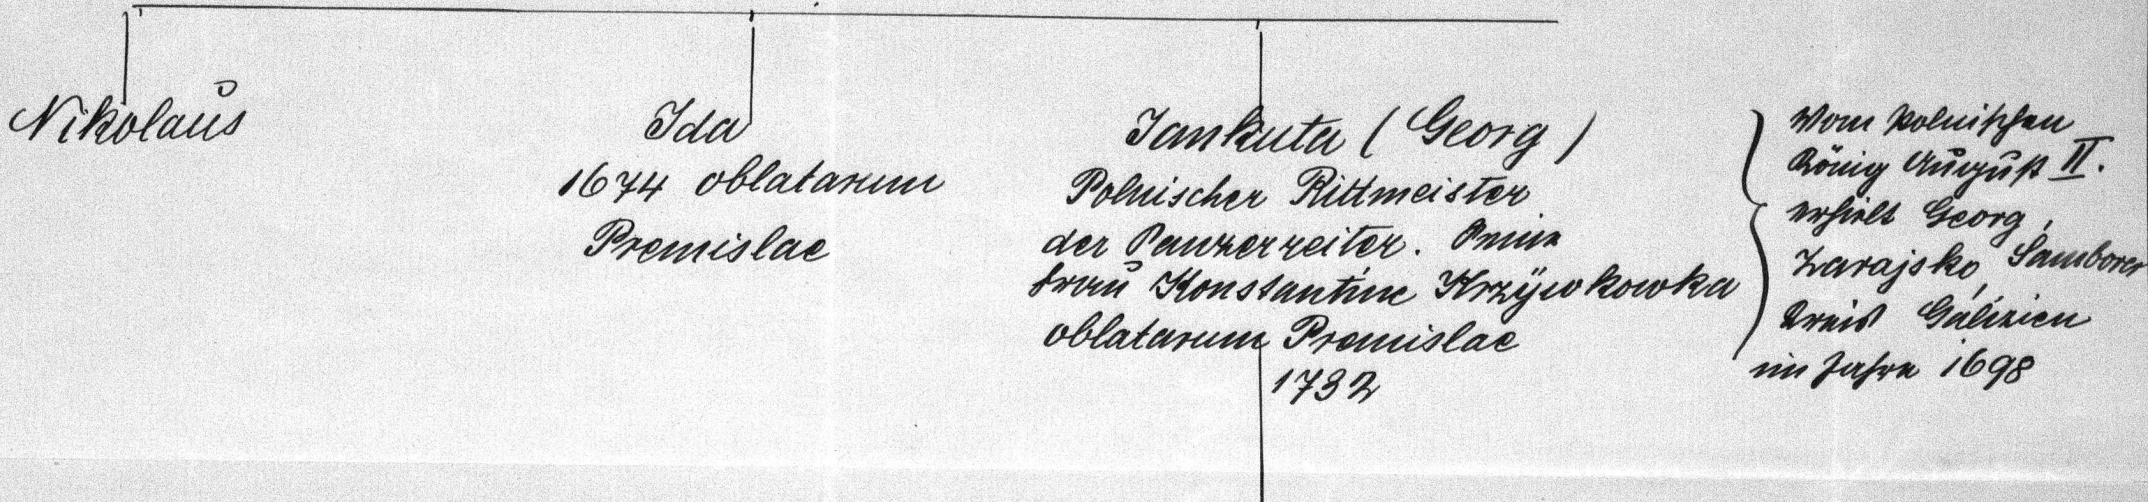 Nikolaus
Ida
1674 oblatarum
Premislae
Jankuta (Georg)
Polnischer Rittmeister
der Panzerreiter. Seine
Frau Konstantine Krzÿwkowka
oblatarum Premislae
1732
Vom polnischen
König August II.
erhielt Georg,
Zarajsko, Samborer
Kreis Galizien
im Jahre 1698